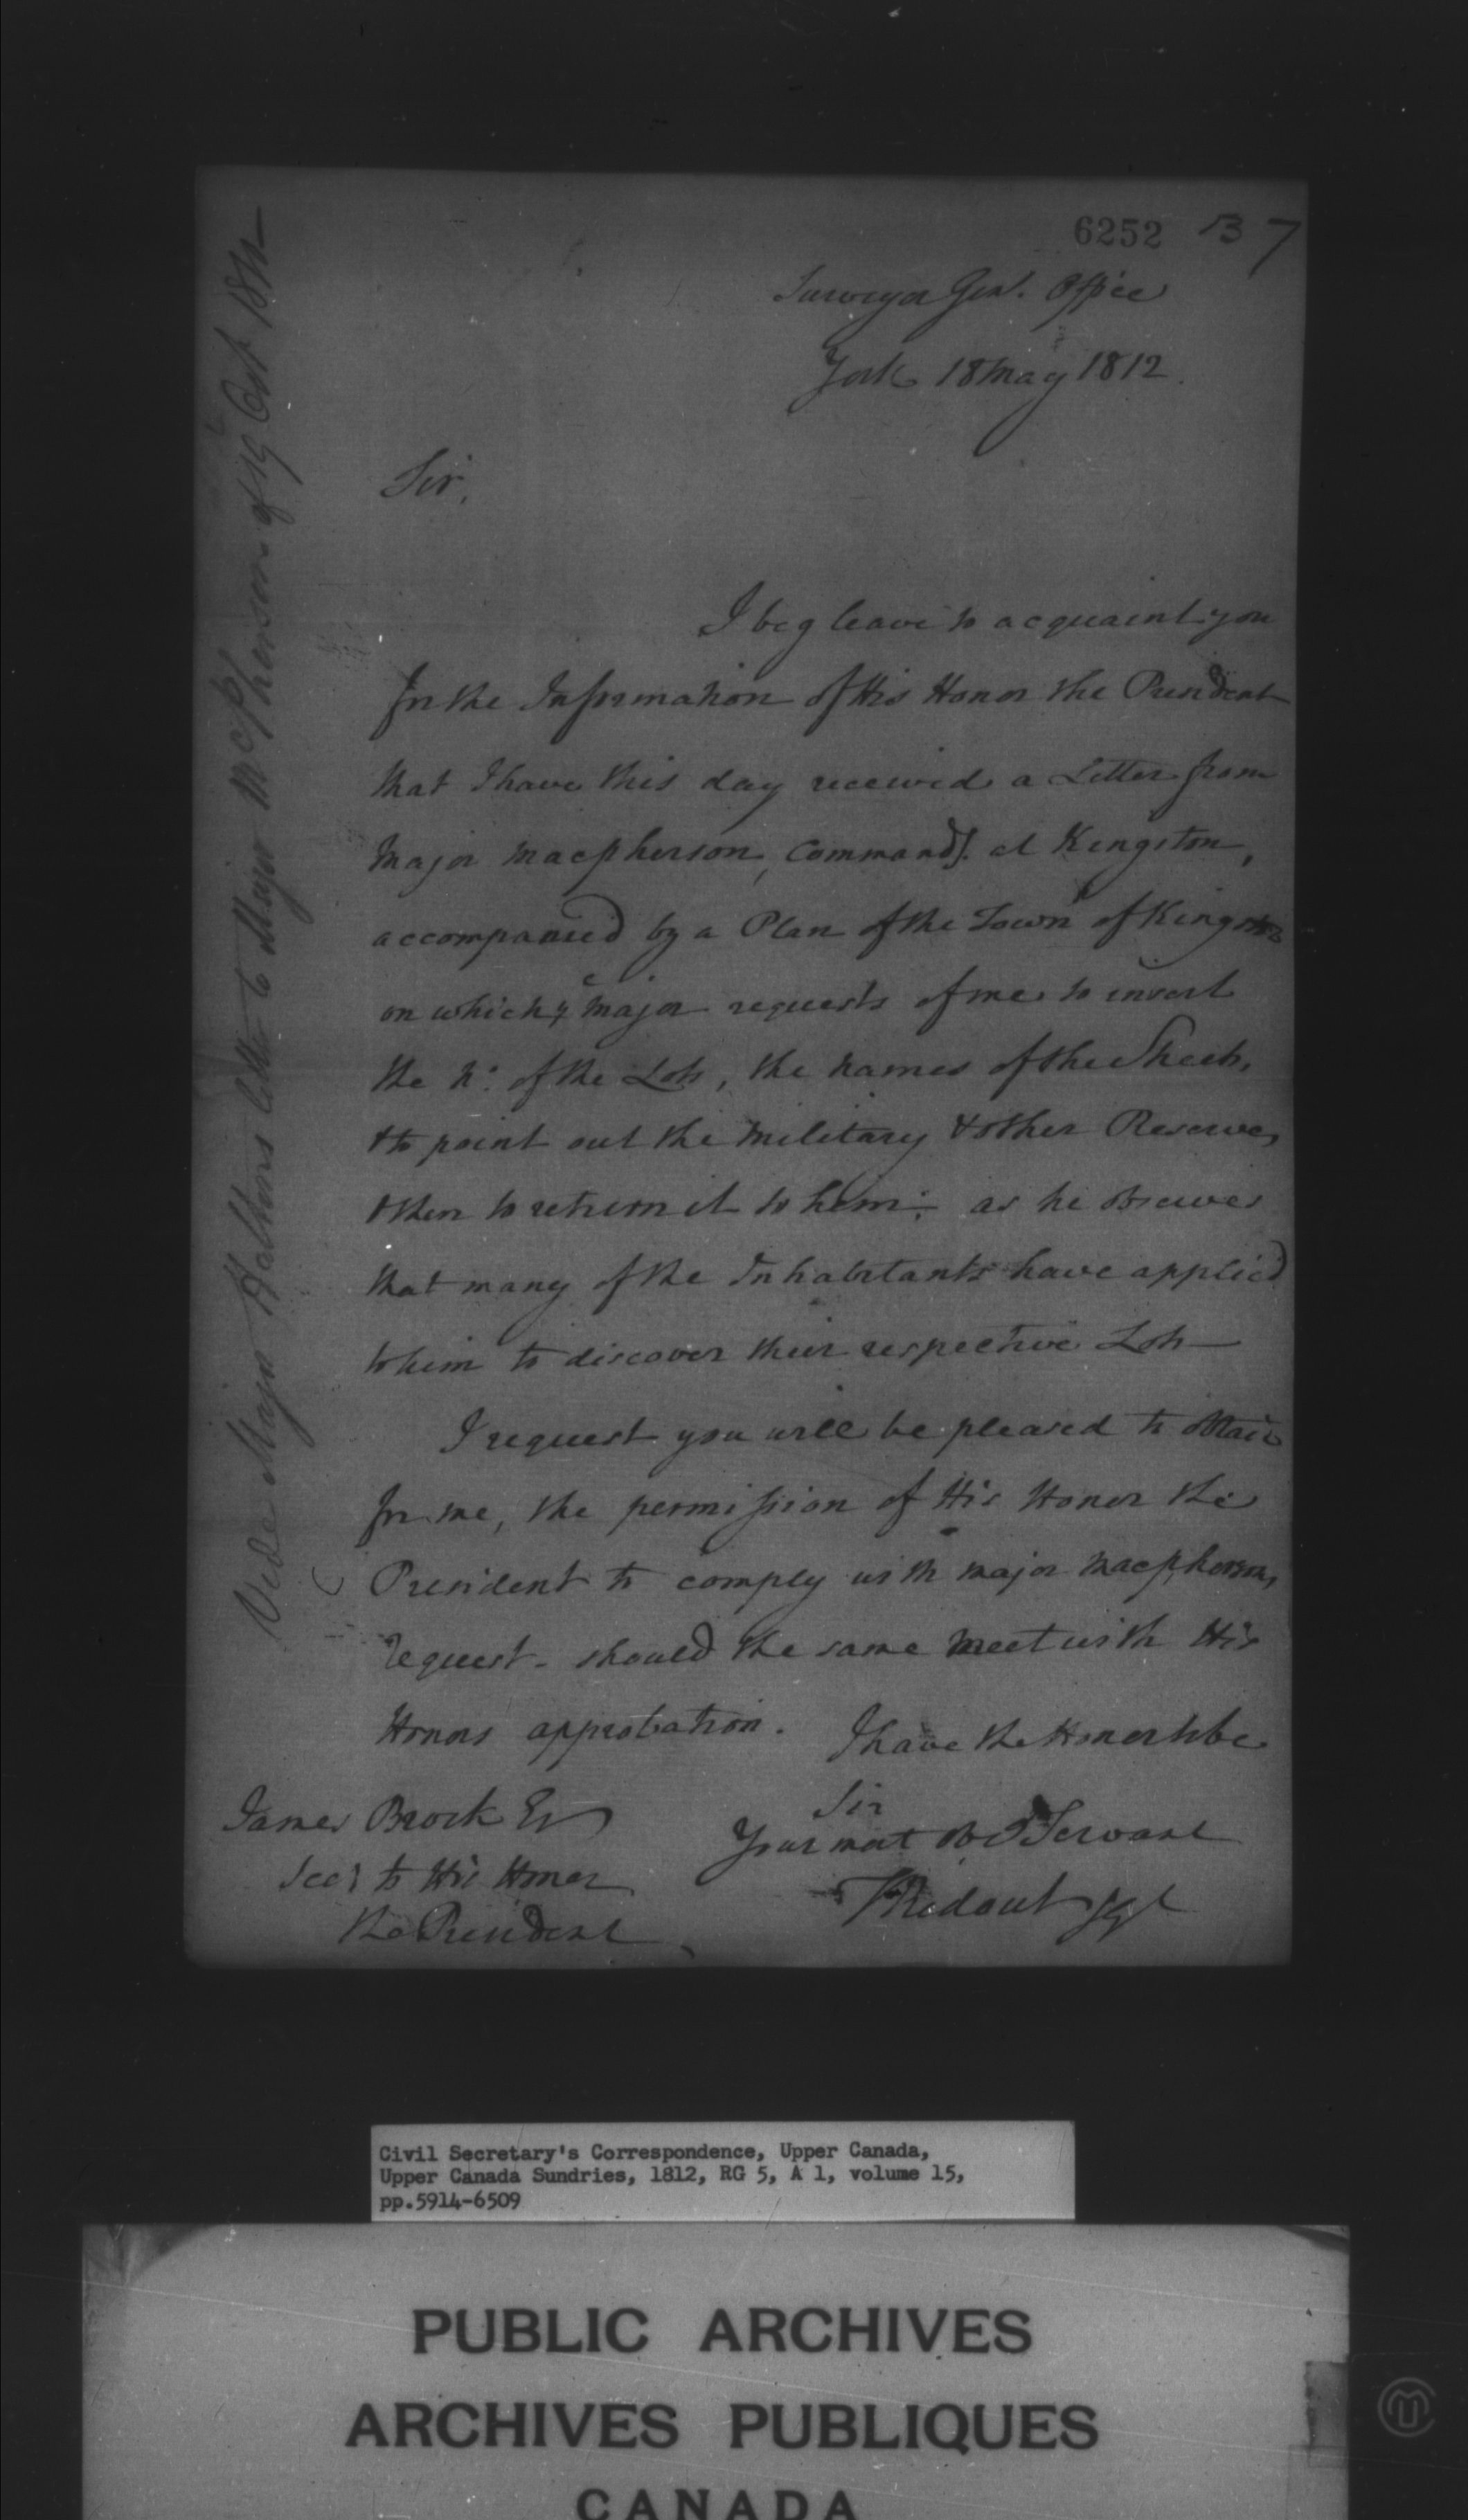 6252 B 7
Surveyor Genl. Office
York 18 May 1812.
Sir,
I beg leave to acquaint you
for the Information of His Honor the President
that I have this day received a Letter from
Major Macpherson, Commandt. at Kingston,
accompanied by a Plan of the Town of Kingston
on which ye Major requests of me to insert
the No. of the Lots, the names of the Streets,
& to point out the Military & other Reserves,
& then to return it to him; as he observes
that many of the Inhabitants have applied
to him to discover their respective Lots—
I request you will be pleased to obtain
for me, the permission of His Honor the
President to comply with Major Macphersons
request - should the same meet with His
Honors approbation. I have the Honor to be
Sir
Your most Obd Servant
T Ridout
James Brock Esq
Secy to His Honor
the President
Vide Major Halton's letter to Major McPherson of 19 Oct 1811—
Civil Secretary's Correspondence, Upper Canada,
Upper Canada Sundries, 1812, RG 5, A 1, volume 15,
pp.5914-6509
PUBLIC ARCHIVES
ARCHIVES PUBLIQUES
CANADA